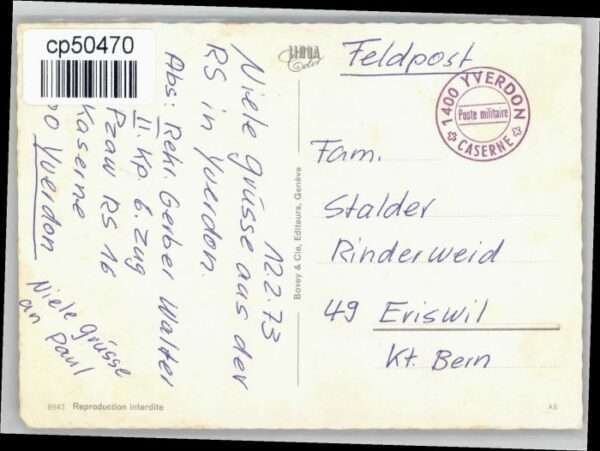 cp50470
12.2.73
Niele grüsse aus der
RS in Yverdon.
Abs: Rekr. Gerber Walter
II. Kp. 6. Zug
Pzaw RS 16
Kaserne
Yverdon
Niele grüsse
an Paul
Bovey & Cie, Editeurs, Genève
Feldpost
1400 YVERDON
Poste militaire
CASERNE
Fam.
Stalder
Rinderweid
49 Eriswil
Kt. Bern
Reproduction interdite